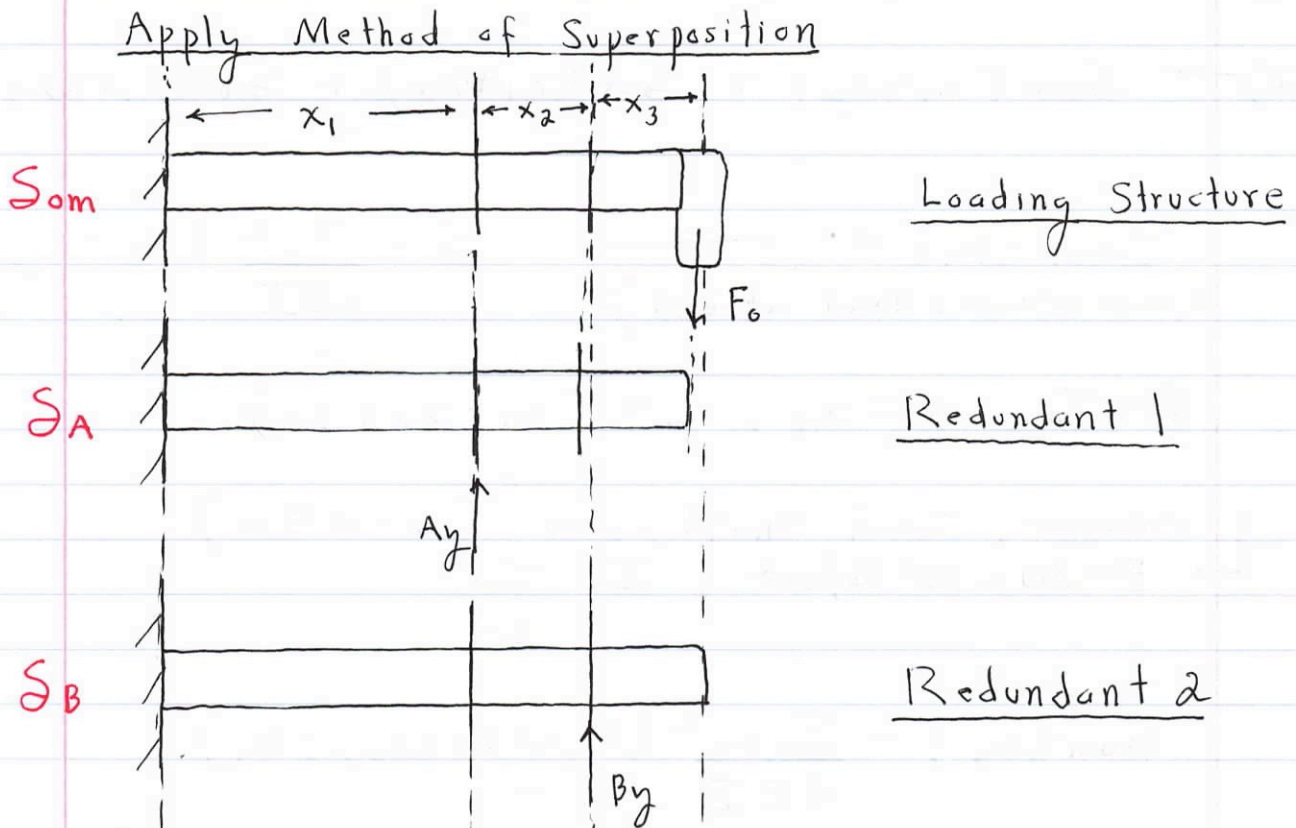 Apply Method of Superposition
x₁ x₂ x₃
Som
Loading Structure
F₀
SA
Redundant 1
Ay
SB
Redundant 2
By